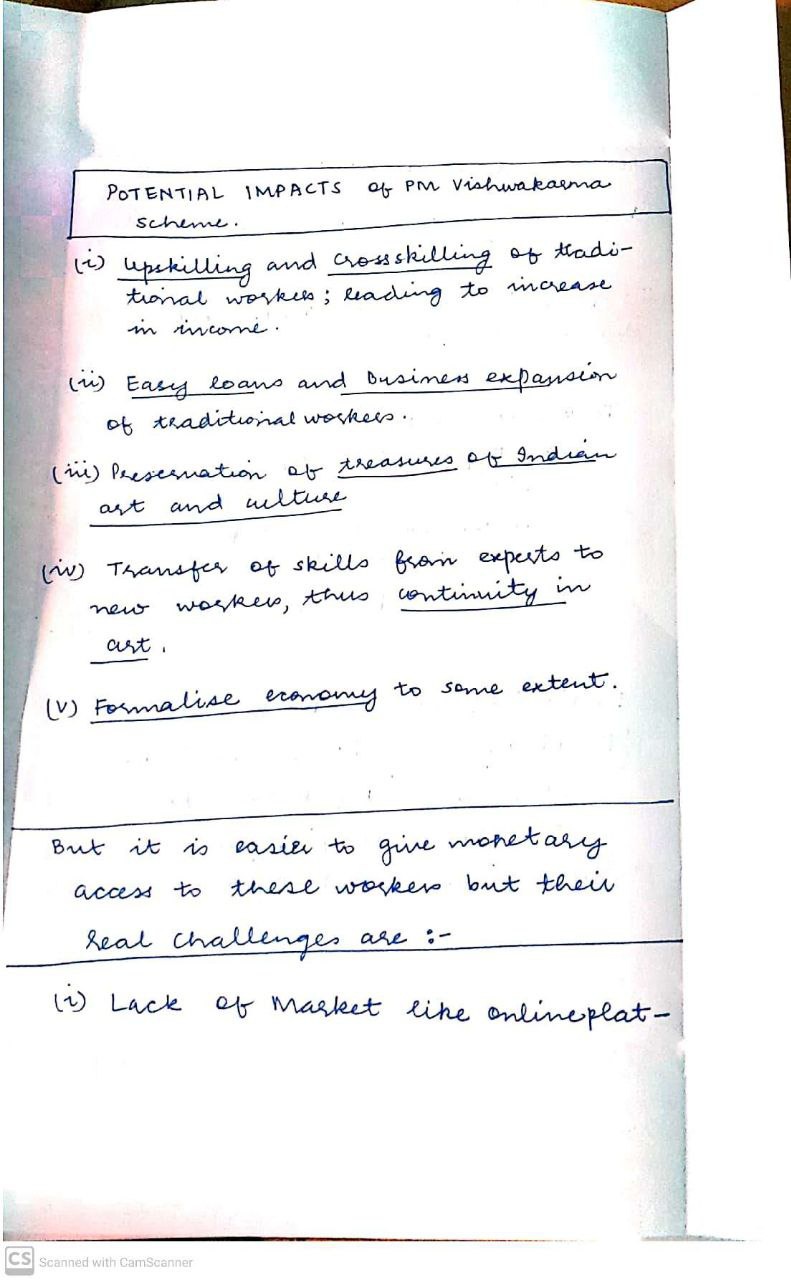 POTENTIAL IMPACTS of PM Vishwakarma
scheme.
(i) Upskilling and crosskilling of tradi-
tional workers; leading to increase
in income.
(ii) Easy loans and business expansion
of traditional workers.
(iii) Preservation of treasures of Indian
art and culture
(iv) Transfer of skills from experts to
new workers, thus continuity in
art.
(v) Formalise economy to some extent.
But it is easier to give monetary
access to these workers but their
real challenges are :-
(i) Lack of Market like online plat-
CS Scanned with CamScanner